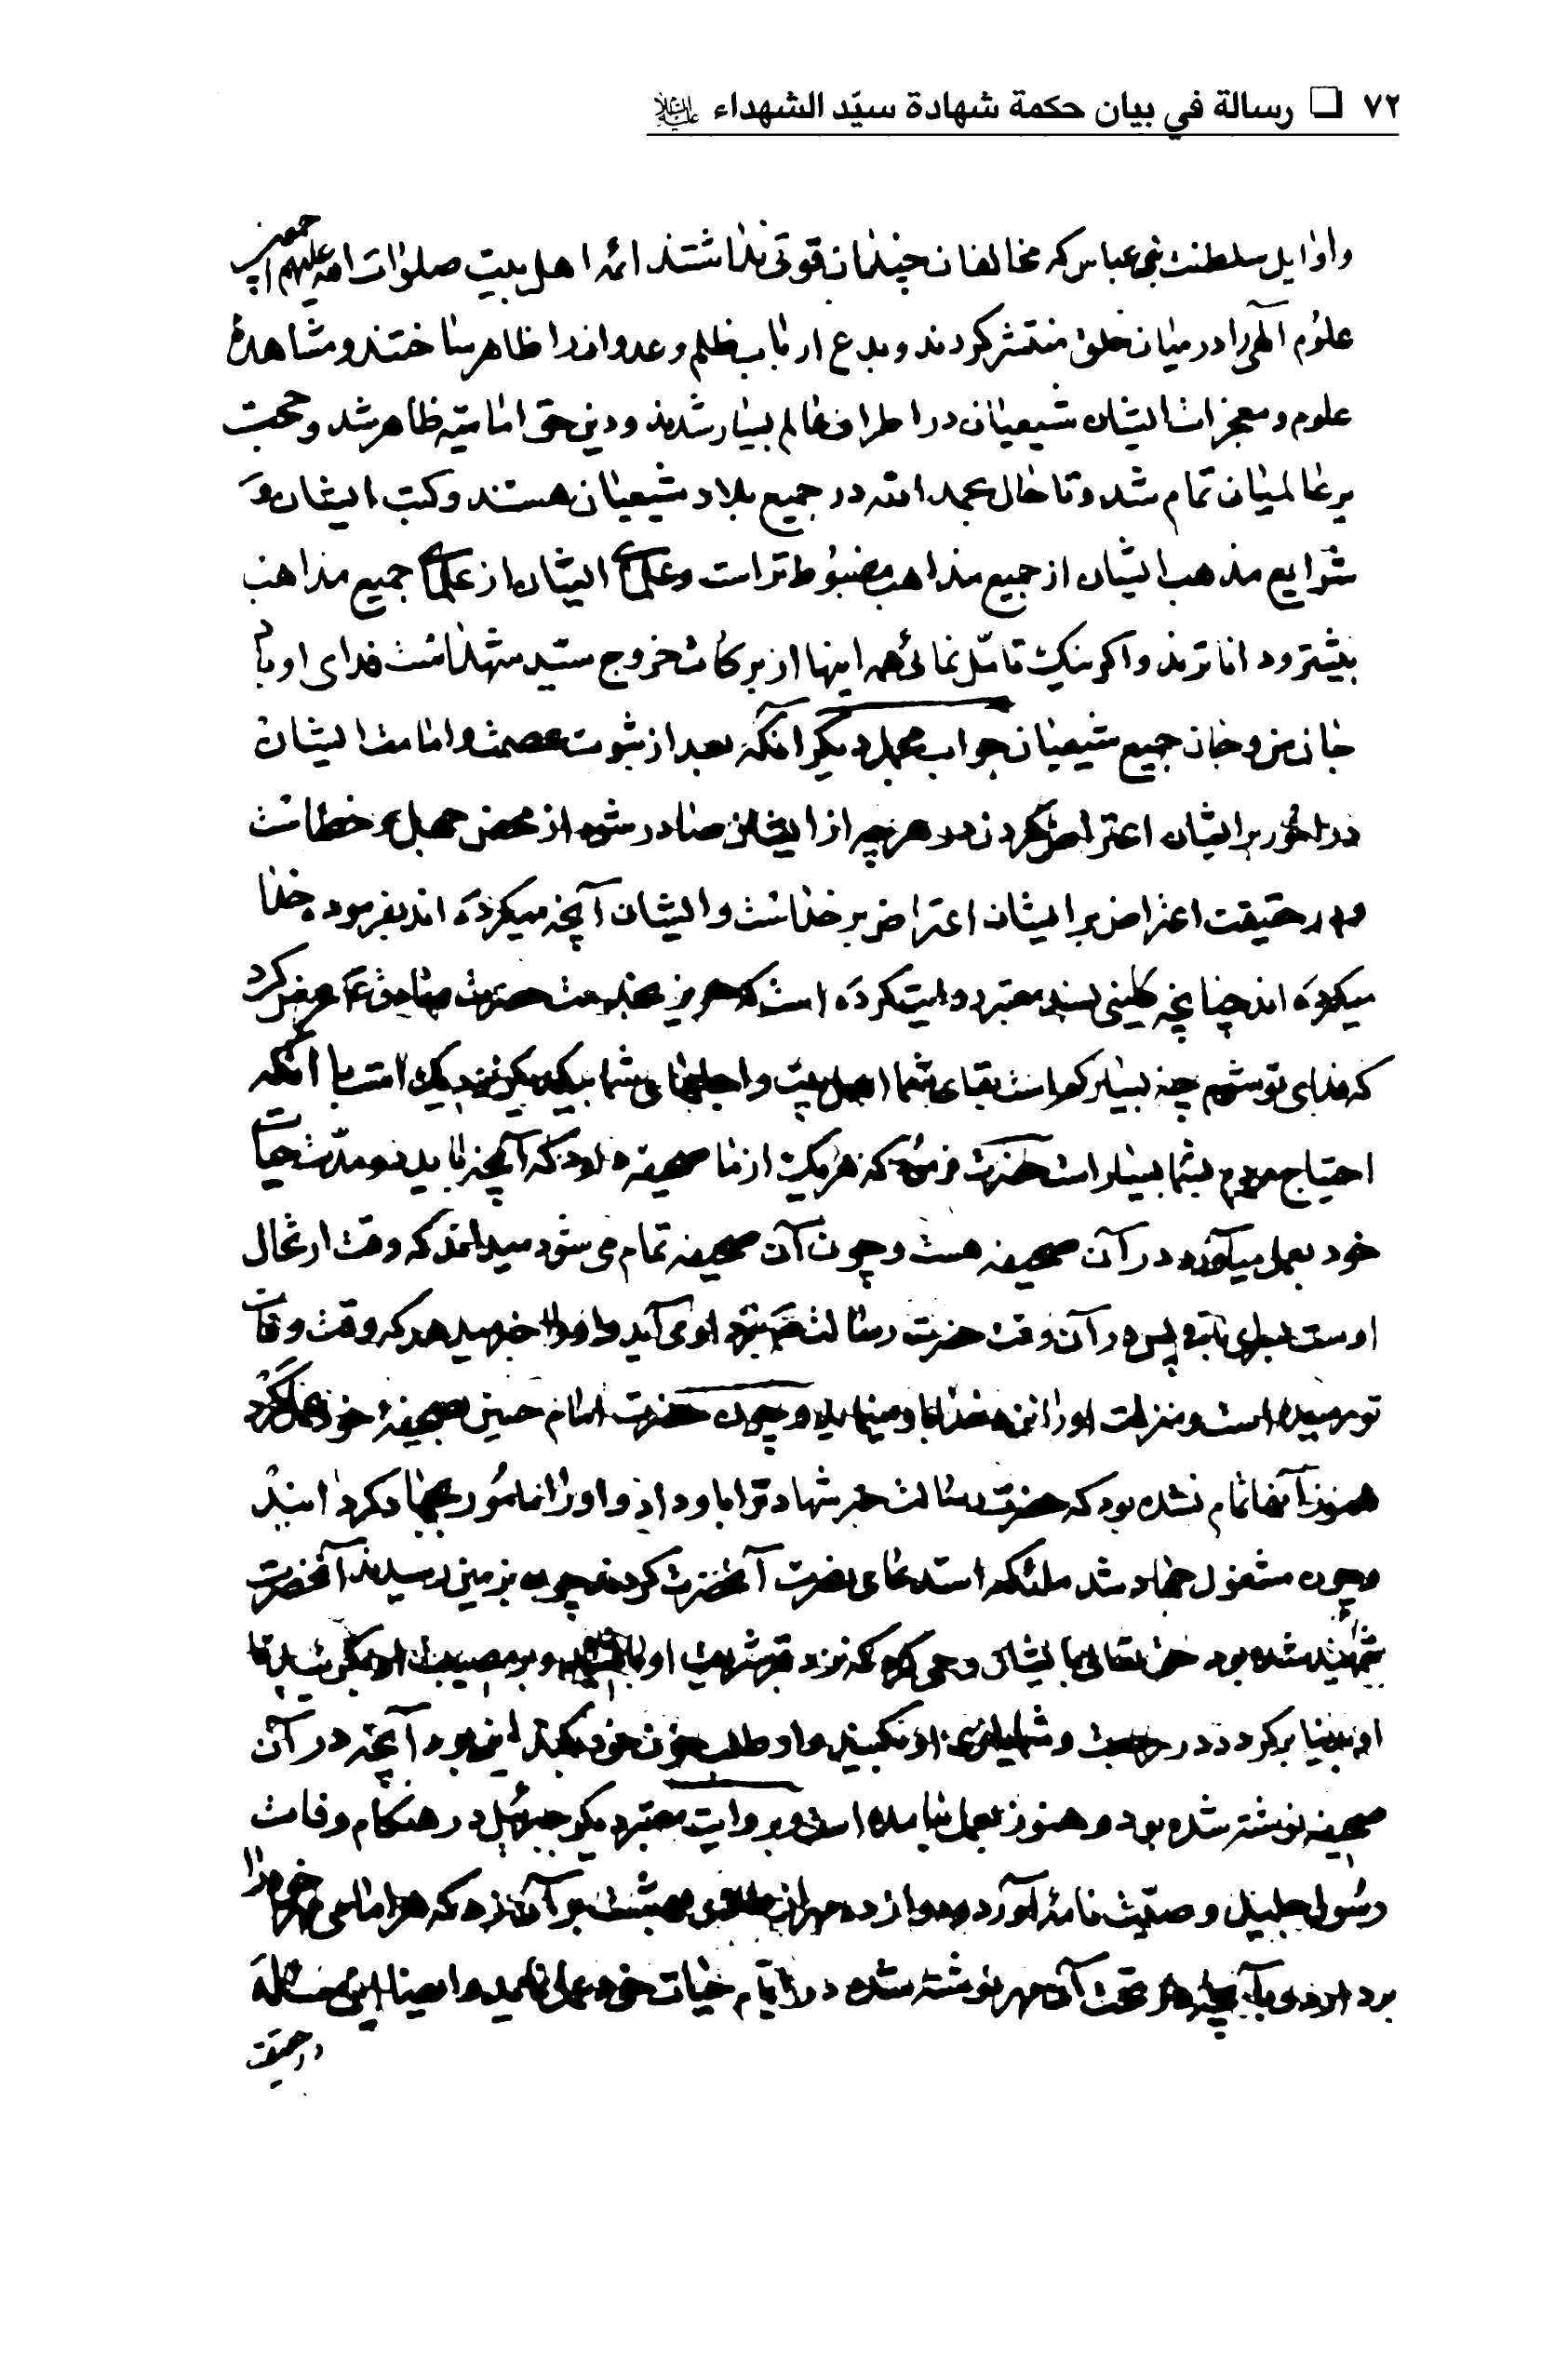 ٧٢ ❏ رسالة في بيان حكمة شهادة سيّد الشهداء عليه السلام
واوايل سلطنت بنی عباس که مخالفان چندان قوتی نداشتند ائمه اهل بیت صلوات الله علیهم اجمعین
علوم آلهی را در میان خلق منتشر کردند و بدع ارباب ظلم و عدوانرا ظاهر ساختند و مشاهدهٔ
علوم و معجزات ایشان شیعیان در اطراف عالم بسیار شدند و دین حق امامیه ظاهر شد و حجت
بر عالمیان تمام شد و تا حال بحمد الله در جمیع بلاد شیعیان هستند و کتب ایشان و
شرایع مذهب ایشان از جمیع مذاهب مضبوط تر است و علمای ایشان از علمای جمیع مذاهب
بیشتر و داناترند و اکر نیک تامّل نمائی همه اینها از برکات خروج سیّد شهداست فدای او باد
جان من و جان جمیع شیعیان جواب مجمل دیکر آنکه بعد از ثبوت عصمت و امامت ایشان
در امور بر ایشان اعتراض کردن و هرچه از ایشان صادر شود از محض جهل و خطاست
و در حقیقت اعتراض بر ایشان اعتراض بر خداست و ایشان آنچه میکرده اند بفرموده خدا
میکرده اند چنانچه کلینی بسند معتبر روایت کرده است که حریز بخدمت حضرت صادق ع عرض کرد
که فدای تو شوم چه بسیار کم است بقای شما اهل بیت و اجلهای شما بیکدیکر نزدیک است با آنکه
احتیاج مردم بشما بسیار است حضرت فرمود که هر یک از ما صحیفه دارد که آنچه باید در مدّت حیات
خود بعمل آورد در آن صحیفه هست و چون آن صحیفه تمام می شود میداند که وقت ارتحال
اوست بدار باقی پس در آن وقت حضرت رسالت بنزد او می آید و او را خبر میدهد که وقت وفات
تو رسیده است و منزلت او را نزد خدا باو مینماید و چون حضرت امام حسین صحیفهٔ خود عمل کرد
هنوز آنها تمام نشده بود که حضرت رسالت خبر شهادترا باو داد و او را مامور بجهاد کردانید
و چون مشغول جهاد شد ملئکه استدعای نصرت آنحضرت کردند چون بزمین رسیدند آنحضرت
شهید شده بود حق تعالی بایشان وحی کرد که نزد قبر شریف او باشید و بر مصیبت او بکریید تا
او بدنیا برکردد در رجعت و شما یاری او بکنید و او طلب خون خود بکند این بود آنچه در آن
صحیفه نوشته شده بود و هنوز بعمل نیامده است و بروایت معتبر دیکر جبرئیل در هنکام وفات
رسول جلیل وصیّت نامهٔ آورد و دوازده مهر از طلای بهشت بر آن زده که هر امامی مهر خود را
بردارد و بآنچه در تحت آن مهر نوشته شده در ایّام حیات خود عمل نماید و ایضا این مساله
در حقیقت